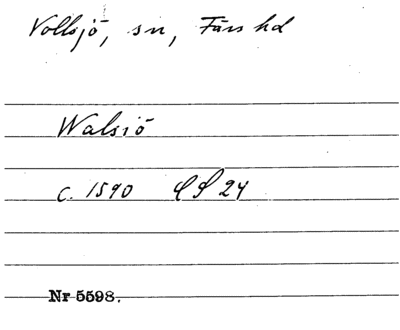 Vollsjö, sn, Färs hd
Walsiö
c. 1590 LP 24
Nr 5598.